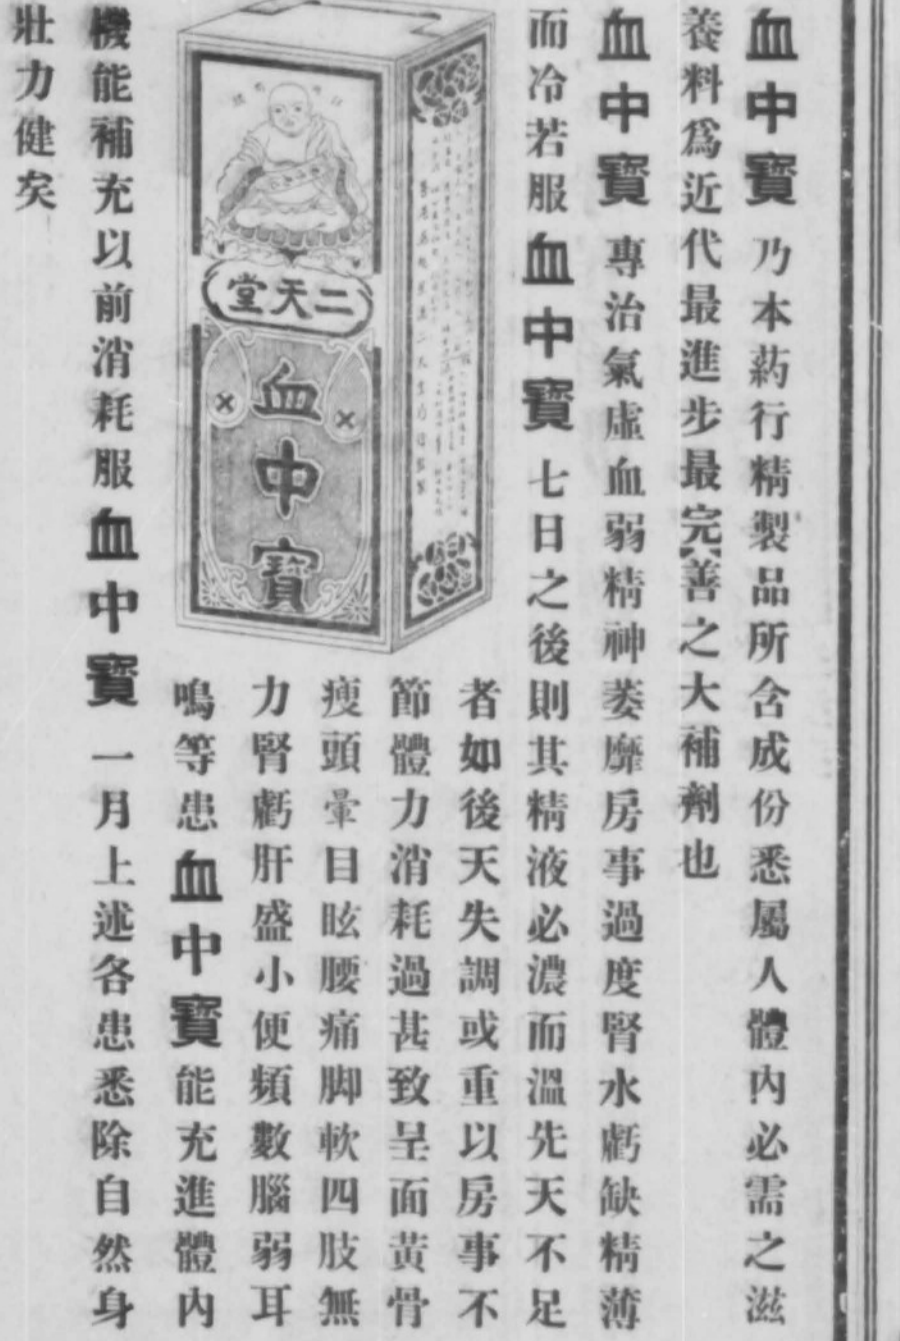 血中寶乃本葯行精製品所含成份悉屬人體內必需之滋
養料爲近代最進步最完善之大補劑也
血中寶專治氣虛血弱精神萎靡房事過度腎水虧缺精薄
而冷若服血中寶七日之後則其精液必濃而溫先天不足
者如後天失調或重以房事不
節體力消耗過甚致呈面黃骨
瘦頭暈目眩腰痛脚軟四肢無
力腎虧肝盛小便頻數腦弱耳
鳴等患血中寶能充進體內
機能補充以前消耗服血中寶一月上述各患悉除自然身
壯力健矣
二天堂
血中寶